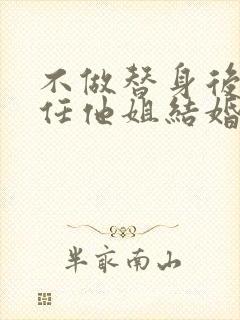 不做替身後
任他姐結婚
半畝南山